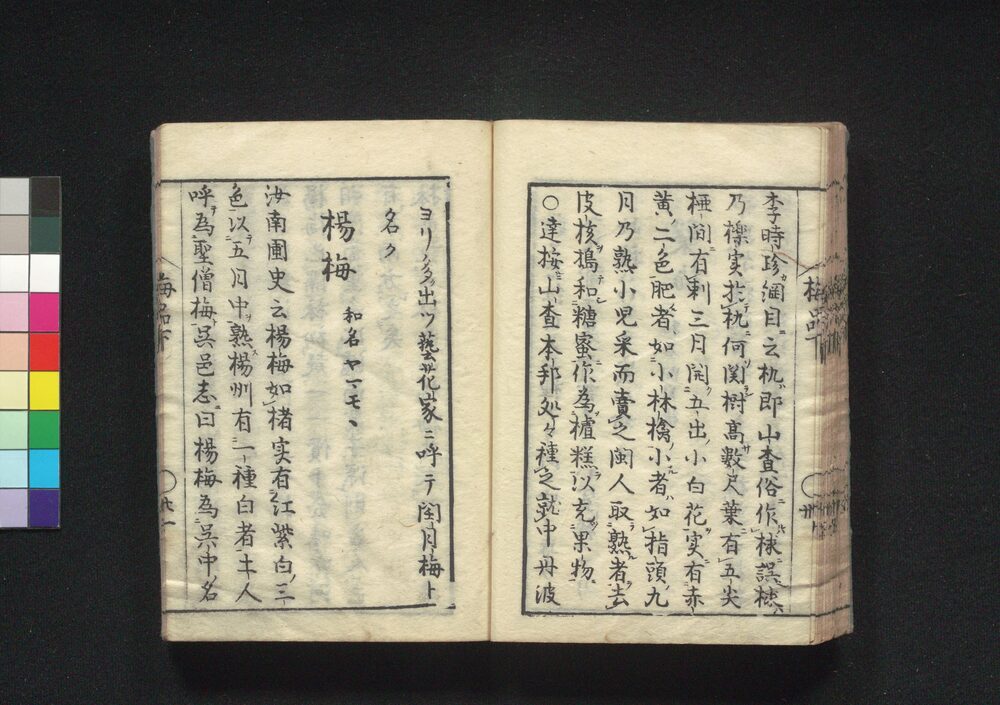 李時珍綱目ニ云朹ハ即山査俗作梂誤梂
乃櫟実於朹何関樹高数尺葉有五尖
椏間有刺三月開五出小白花実有赤
黄ノ二色肥者如小林檎小者如指頭九
月乃熟小児采而賣之閩人取熟者去
皮核搗和糖蜜作為樝糕以充果物
○達按山査本邦処々種之就中丹波
梅品下
廿
ヨリノ多出ツ藝花家ニ呼テ閏月梅ト
名ク
楊梅
和名ヤマモヽ
汝南圃史云楊梅如楮実有江紫白ノ三
色以五月中熟楊州有一種白者土人
呼為聖僧梅呉邑志曰楊梅為呉中名
梅品下
廿一